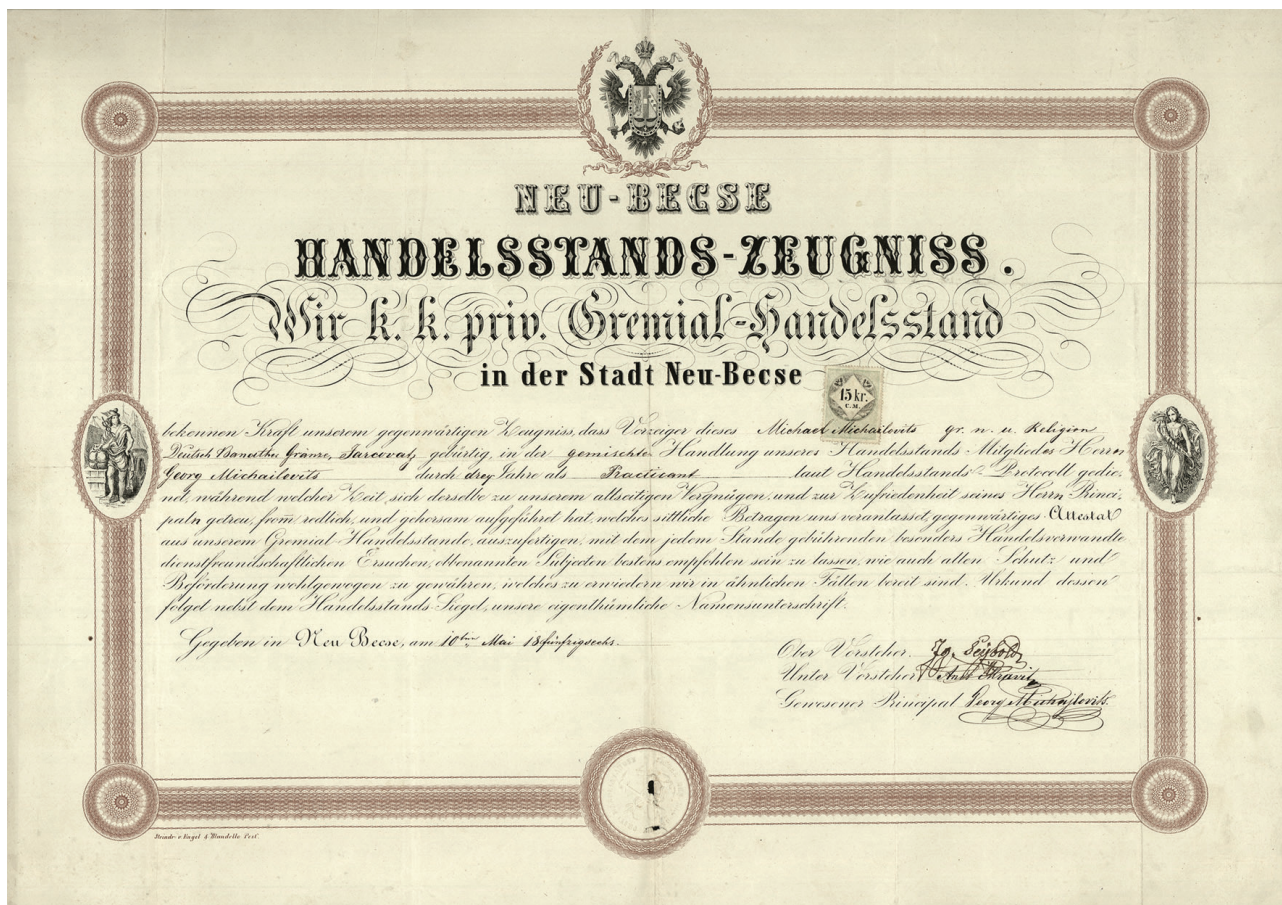 NEU-BECSE
HANDELSSTANDS-ZEUGNISS.
Wir k. k. priv. Gremial-Handelsstand
in der Stadt Neu-Becse
15 kr.
C.M.
bekennen Kraft unserem gegenwärtigen Zeugniss, dass Vorzeiger dieses Michael Michailovits gr. n. u. Religion
Deutsch Banather Gränze, Sarcovatz gebürtig, in der gemischte Handlung unseres Handelsstands-Mitgliedes Herrn
Georg Michailovits durch drey Jahre als Practicant laut Handelsstands-Protocoll gedie-
net, während welcher Zeit, sich derselbe zu unserem allseitigen Vergnügen, und zur Zufriedenheit seines Herrn Princi-
paln getreu, from̄ redlich, und gehorsam aufgeführet hat, welches sittliche Betragen uns veranlasset, gegenwärtiges Attestat
aus unserem Gremial-Handelsstande, auszufertigen, mit dem jedem Stande gebührenden besonders Handelsverwandte
dienstfreundschaftlichen Ersuchen, obbenannten Subjecten bestens empfohlen sein zu lassen, wie auch allen Schutz und
Beförderung wohlgewogen zu gewähren, welches zu erwiedern wir in ähnlichen Fällen bereit sind. Urkund dessen
folget nebst dem Handelsstands-Siegel, unsere eigenthümliche Namensunterschrift.
Gegeben in Neu Becse, am 10ten Mai 18fünfzigsechs.
Ober Vorsteher. Jg. Seybold
Unter Vorsteher
Gewesener Principal Georg Michajlovits
Steindr. v Engel & Mandello Pest.